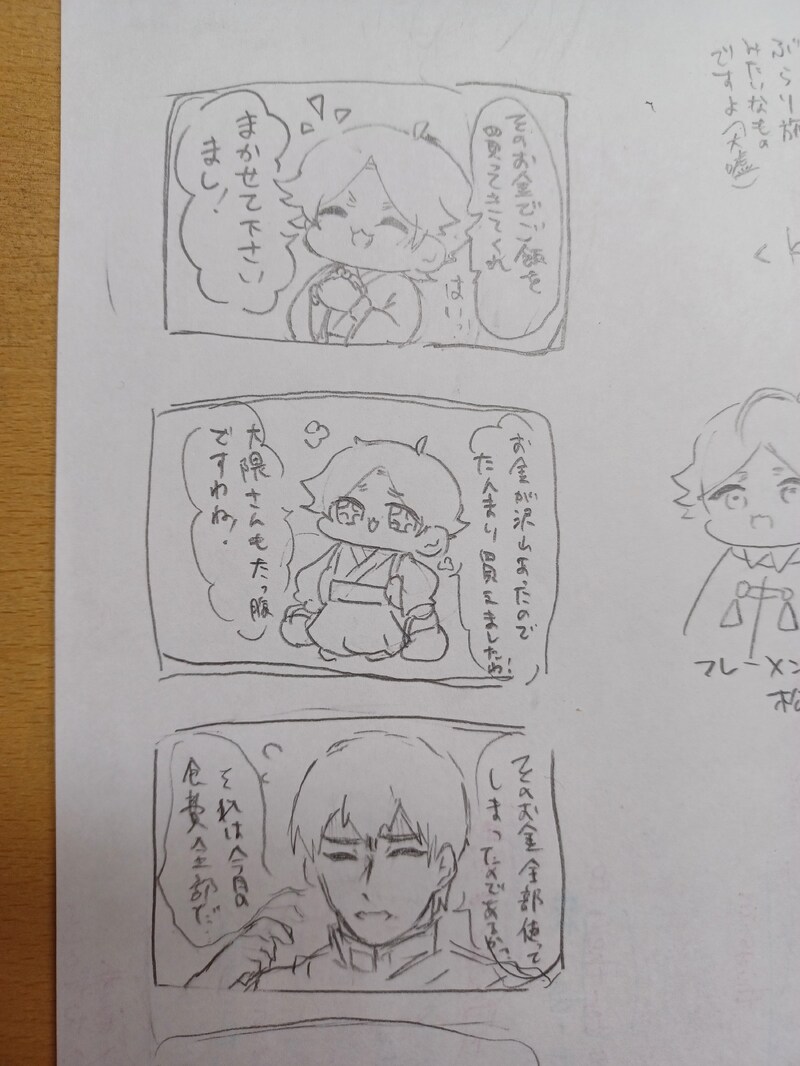 そのお金でご飯を
買ってきてくれ
はいっ
まかせて下さい
まし!
お金が沢山あったので
たんまり買えましたわ!
大隈さんもたっ腹
ですわね!
そのお金全部使って
しまったのであるか…
それは今月の
食費全部だ…
ぶらり旅
みたいなもの
ですよ(大嘘)
フレーメン